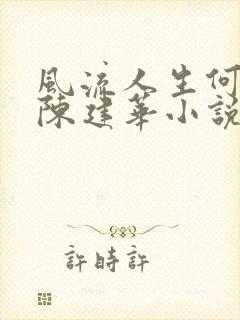 風流人生何
陳建華小說
許時許